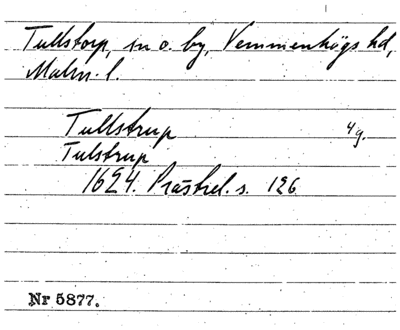 Tullstorp, sn o. by, Vemmenhögs hd,
Malm. l.
Tullstrup 4 g.
Tulstrup
1624. Prästrel. s. 126
Nr 5877.